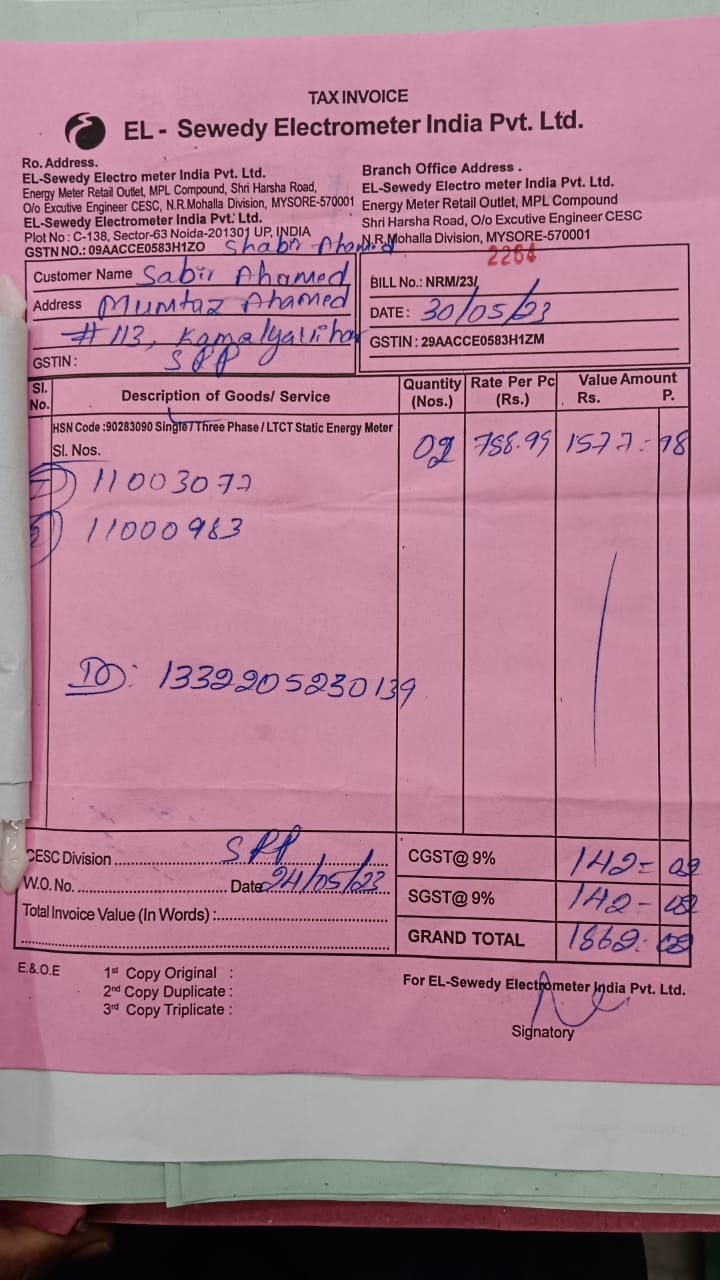 TAX INVOICE
EL - Sewedy Electrometer India Pvt. Ltd.
Ro. Address.
EL-Sewedy Electro meter India Pvt. Ltd.
Energy Meter Retail Outlet, MPL Compound, Shri Harsha Road,
O/o Excutive Engineer CESC, N.R.Mohalla Division, MYSORE-570001
EL-Sewedy Electrometer India Pvt. Ltd.
Plot No : C-138, Sector-63 Noida-201301 UP, INDIA
GSTN NO.: 09AACCE0583H1ZO
Branch Office Address .
EL-Sewedy Electro meter India Pvt. Ltd.
Energy Meter Retail Outlet, MPL Compound
Shri Harsha Road, O/o Excutive Engineer CESC
N.R.Mohalla Division, MYSORE-570001
Shabir Ahamed
Customer Name Sabir Ahamed
Address Mumtaz Ahamed
# 113,
SPP
GSTIN :
BILL No.: NRM/23/ 2264
DATE : 30/05/23
GSTIN : 29AACCE0583H1ZM
Sl. No. Description of Goods/ Service Quantity (Nos.) Rate Per Pc (Rs.) Value Amount Rs. P.
HSN Code :90283090 Single / Three Phase / LTCT Static Energy Meter
Sl. Nos. 02 788.99 1577=98
1) 11003077
2) 11000983
ID: 1332205230139
CESC Division SPP
W.O. No. Date 24/05/23
Total Invoice Value (In Words) :
CGST@ 9% 142=02
SGST@ 9% 142=02
GRAND TOTAL 1862=02
E.& O.E 1st Copy Original :
2nd Copy Duplicate :
3rd Copy Triplicate :
For EL-Sewedy Electrometer India Pvt. Ltd.
Signatory